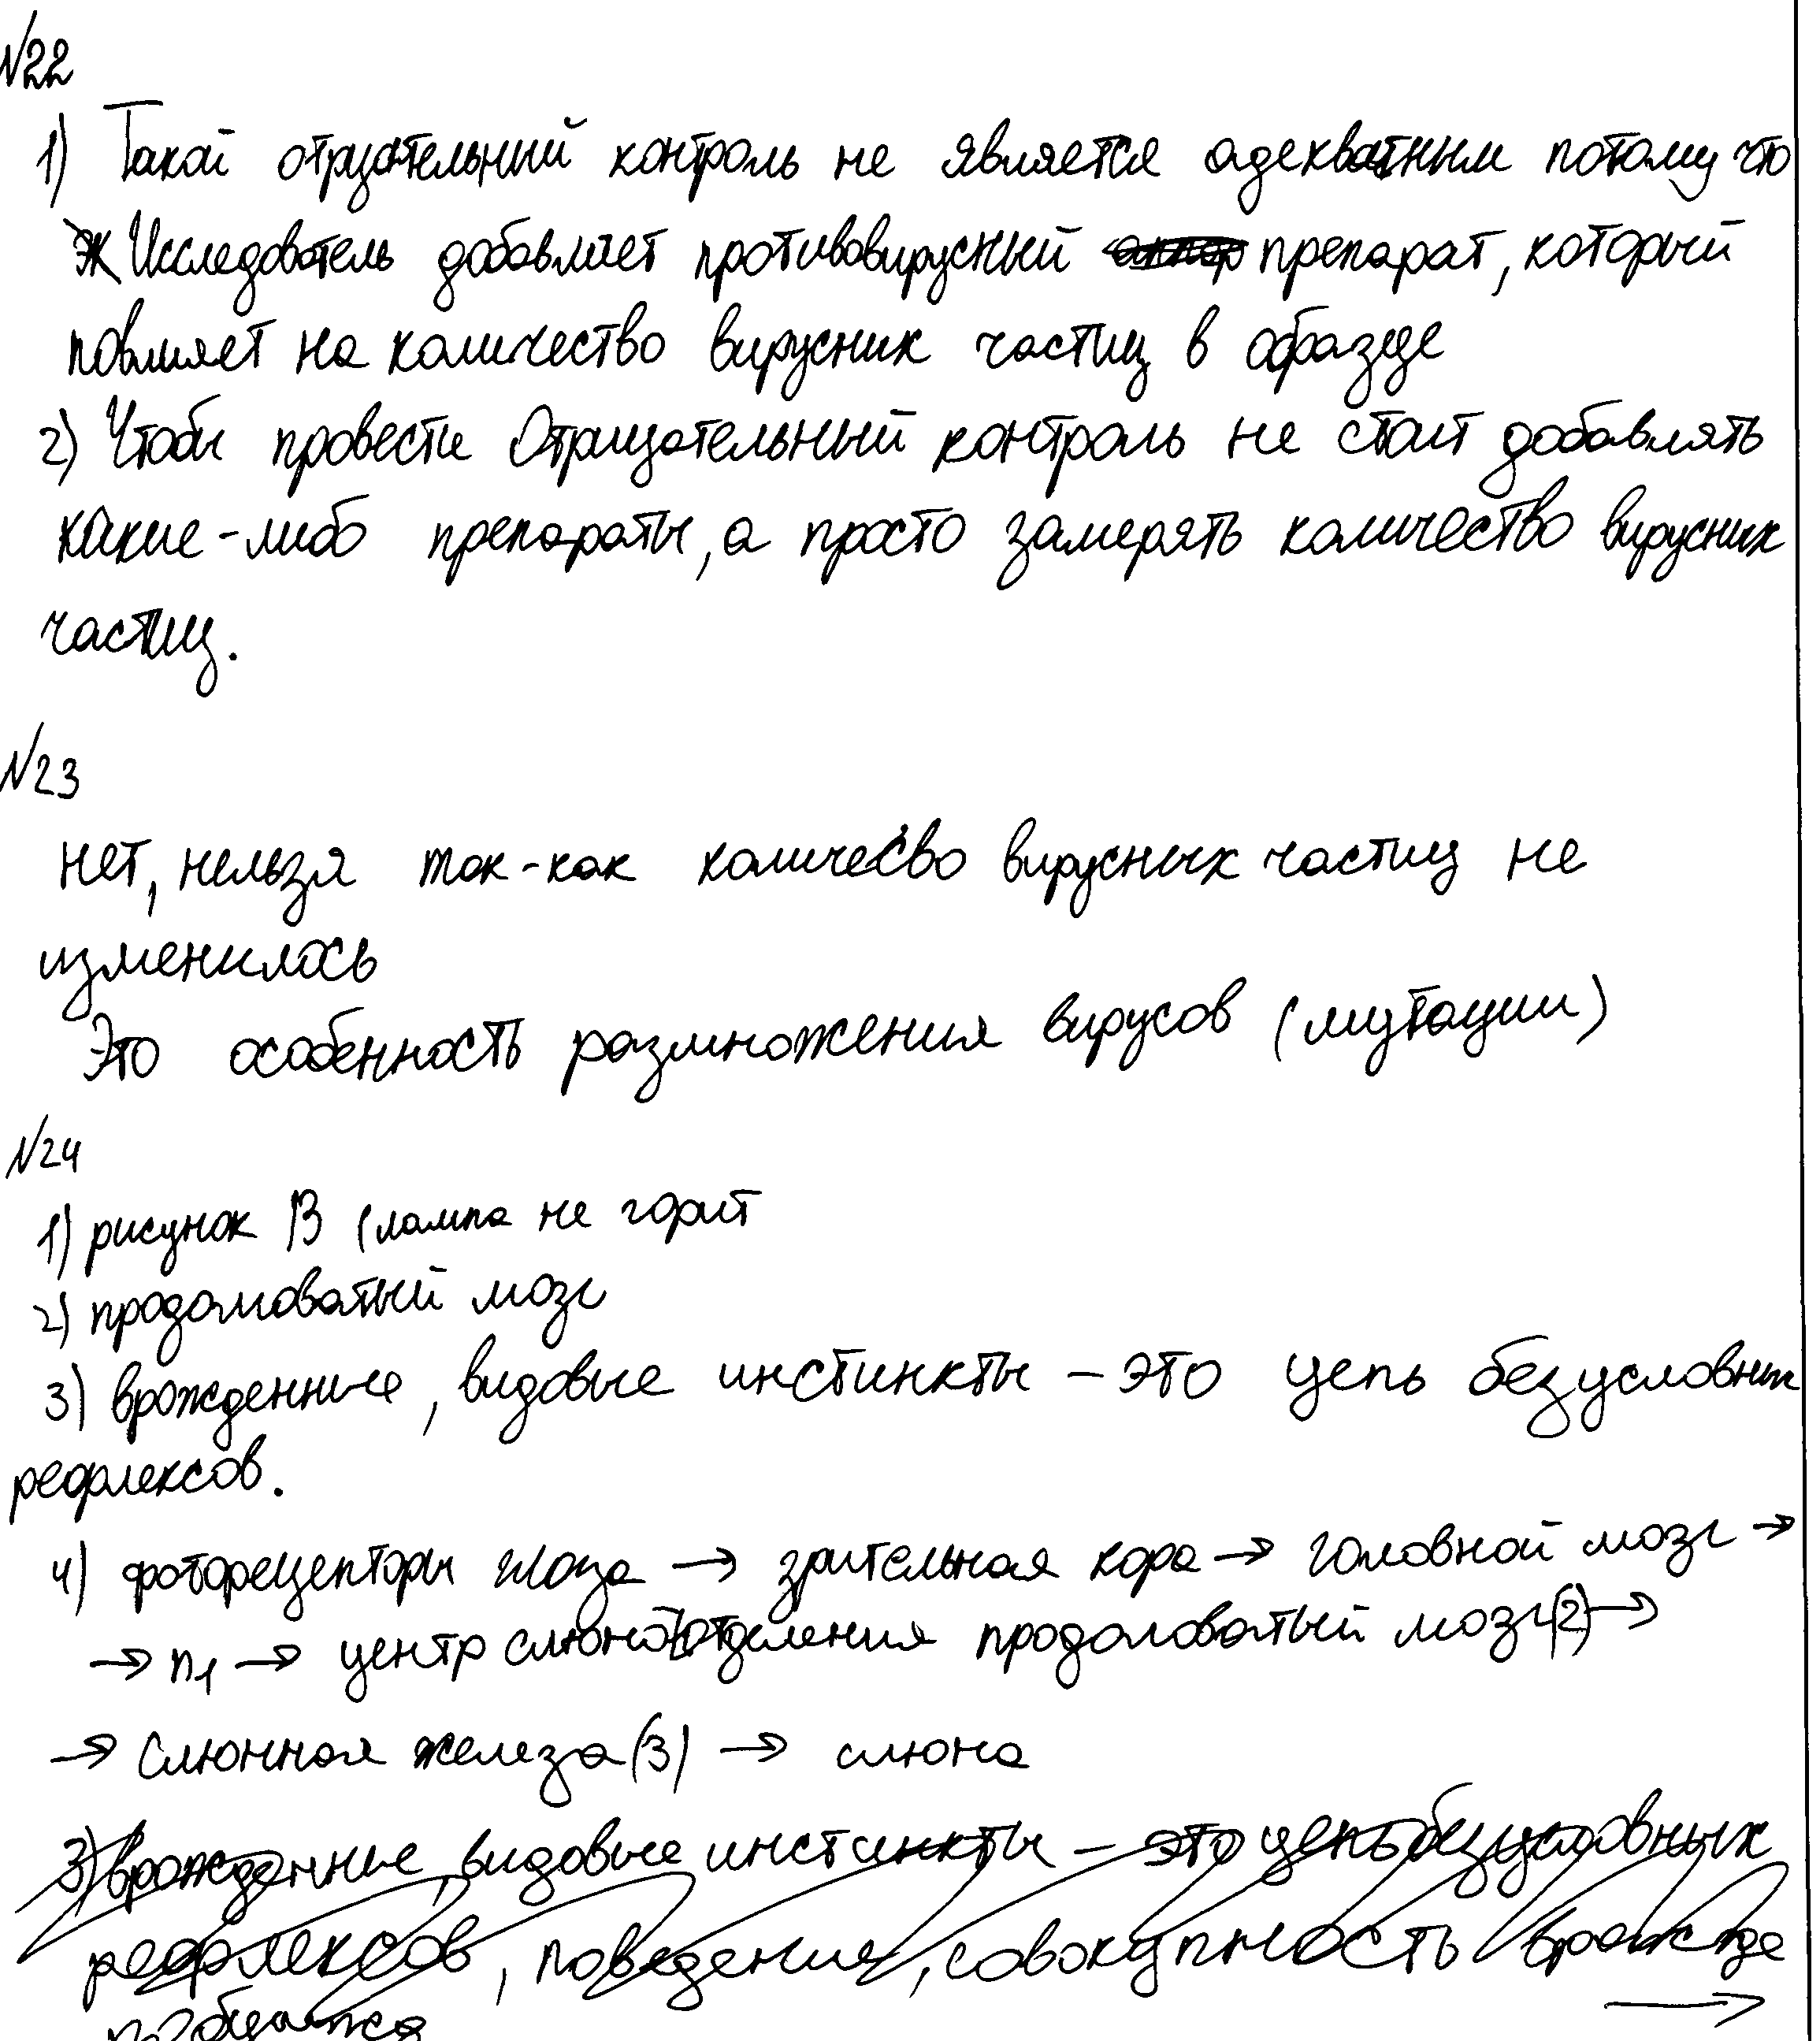 №22
1) Такой отрицательный контроль не является адекватным потому что
Исследователь добавляет противовирусный препарат, который
повлияет на количество вирусних частиц в образце
2) Чтобы провести Отрицательный контроль не стоит добавлять
какие-либо препараты, а просто замерять количество вирусних
частиц.
№23
нет, нельзя так-как количесво вирусных частиц не
изменилось
Это особенность размножения вирусов (мутации)
№24
1) рисунок В (лампа не горит
2) продолговатый мозг
3) врожденные, видовые инстинкты - это цепь безусловных
рефлексов.
4) фоторецепторы глаза → зрительная кора → головной мозг →
→ n1 → центр слюноотделения продолговатый мозг(2) →
→ Слюнная железа(3) → слюна
3) врожденные, видовые инстинкты - это цепь безусловных
рефлексов, поведения, совокупность врожде